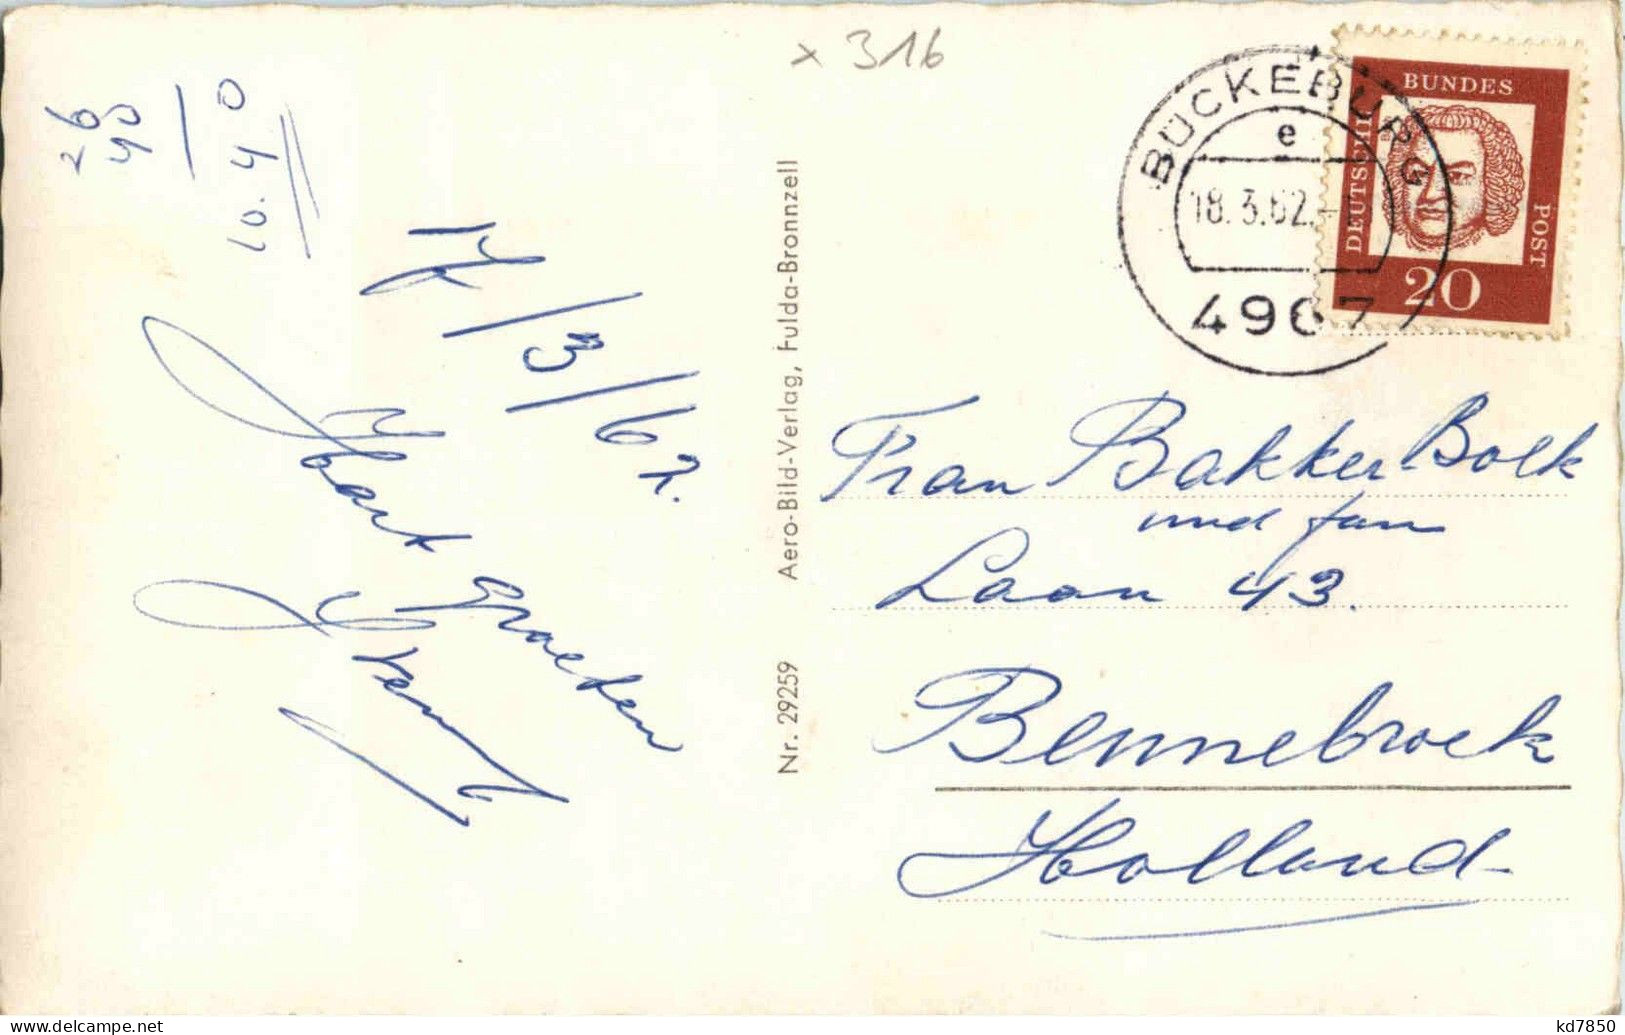 x 316
BÜCKEBURG
e
18.3.62.
4967
BUNDES
DEUTSCHE
POST
20
26
40
10.40
17/3/62.
Hart
graeten
Aero-Bild-Verlag, Fulda-Bronnzell
Nr. 29259
Frau Bakker Bolk
und fam
Laan 43.
Bennebroek
Holland
delcampe.net
kd7850